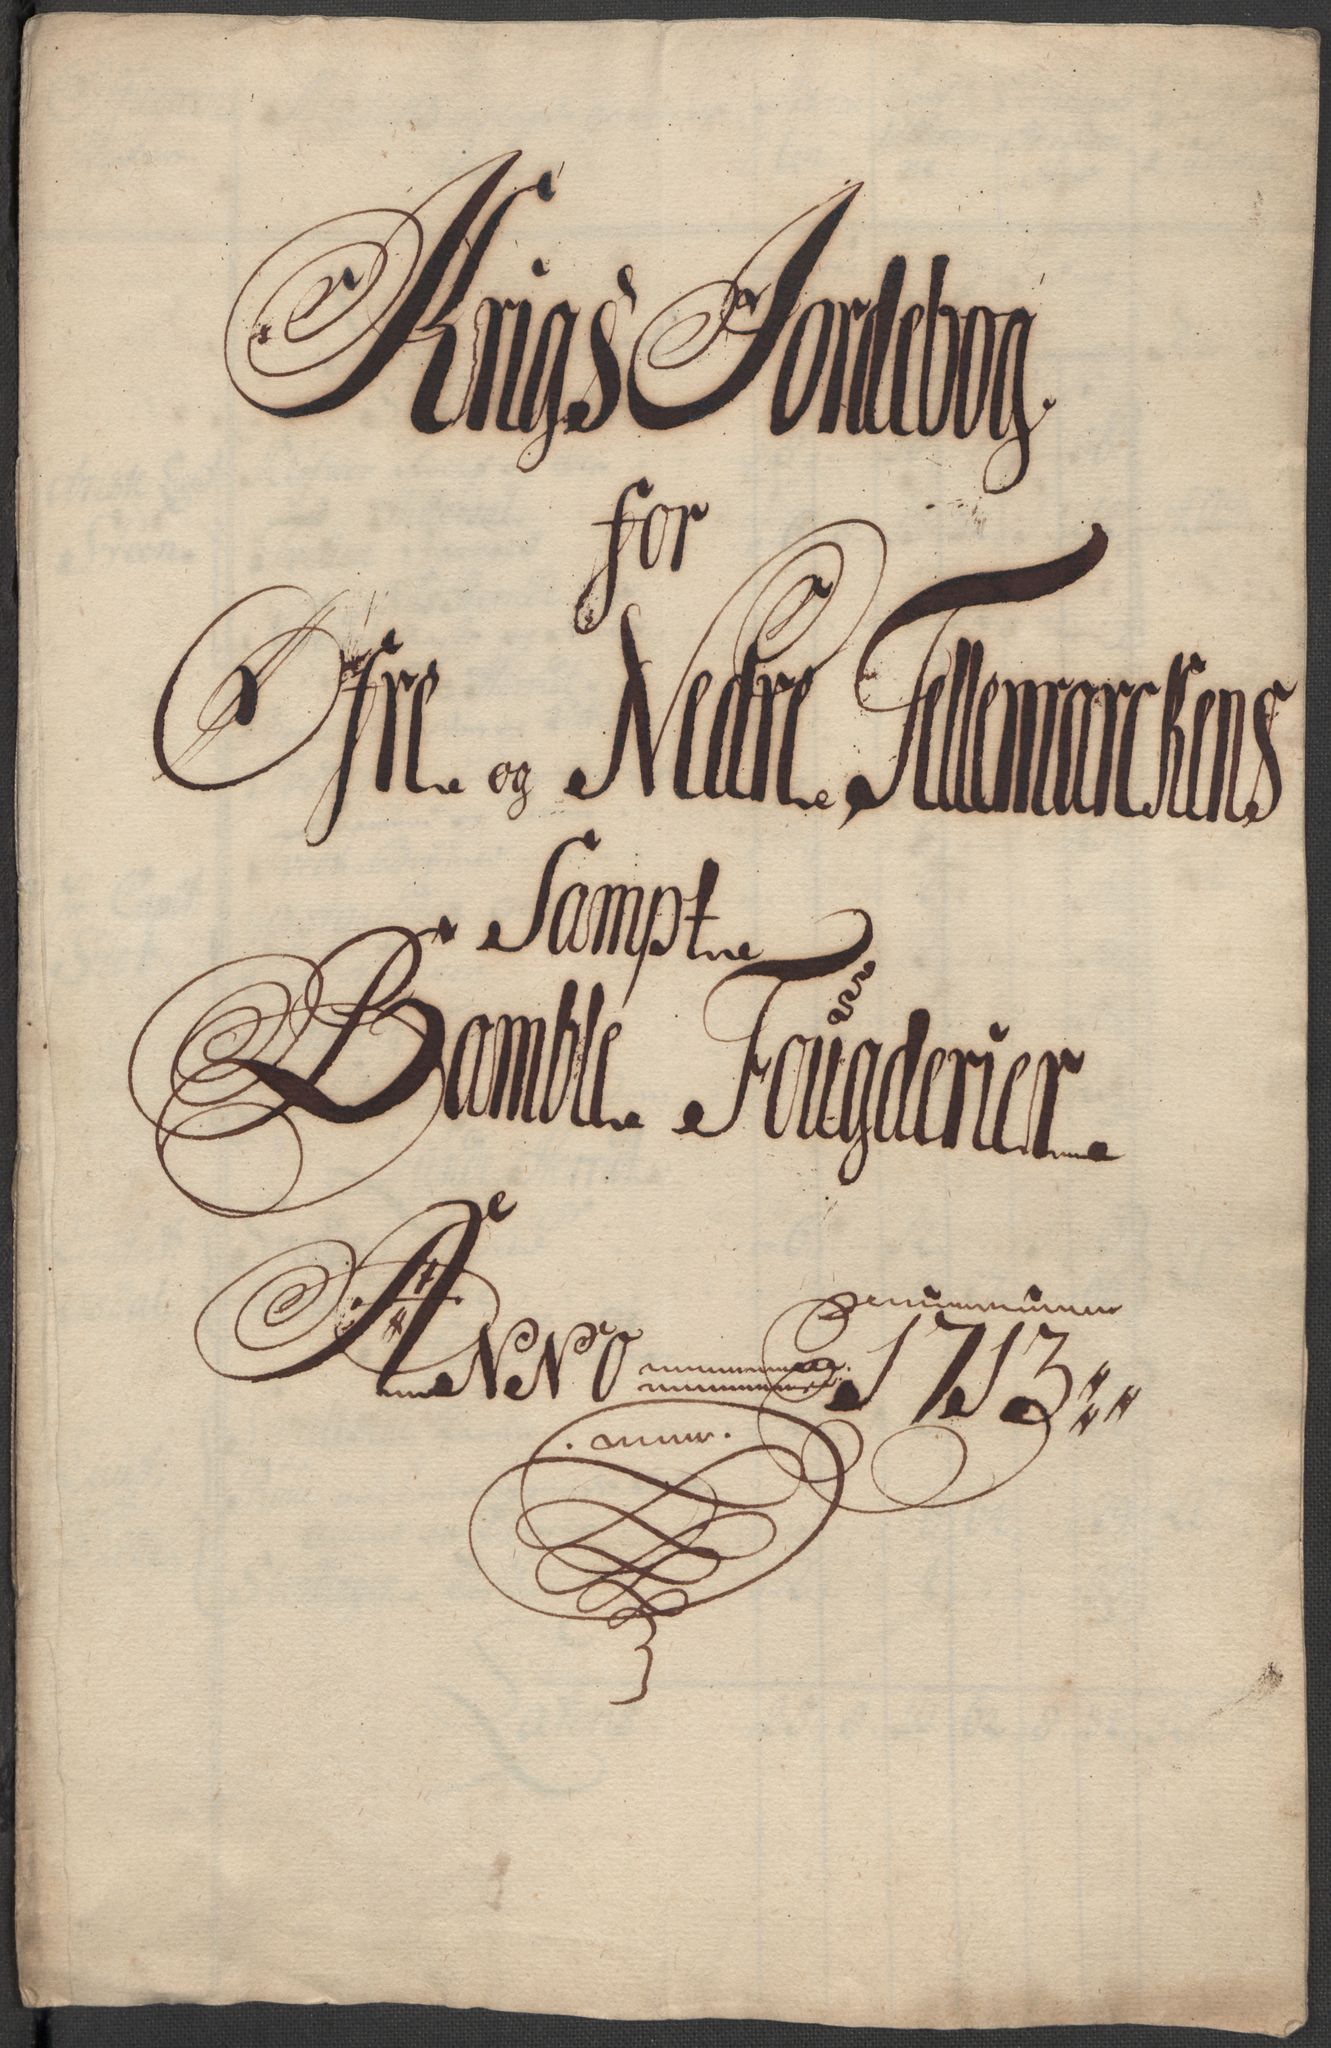 Krigs Jordebog
for
Øfre og Nedre Tellemarckens
Sampt
Bamble Fougderier
Anno 1713